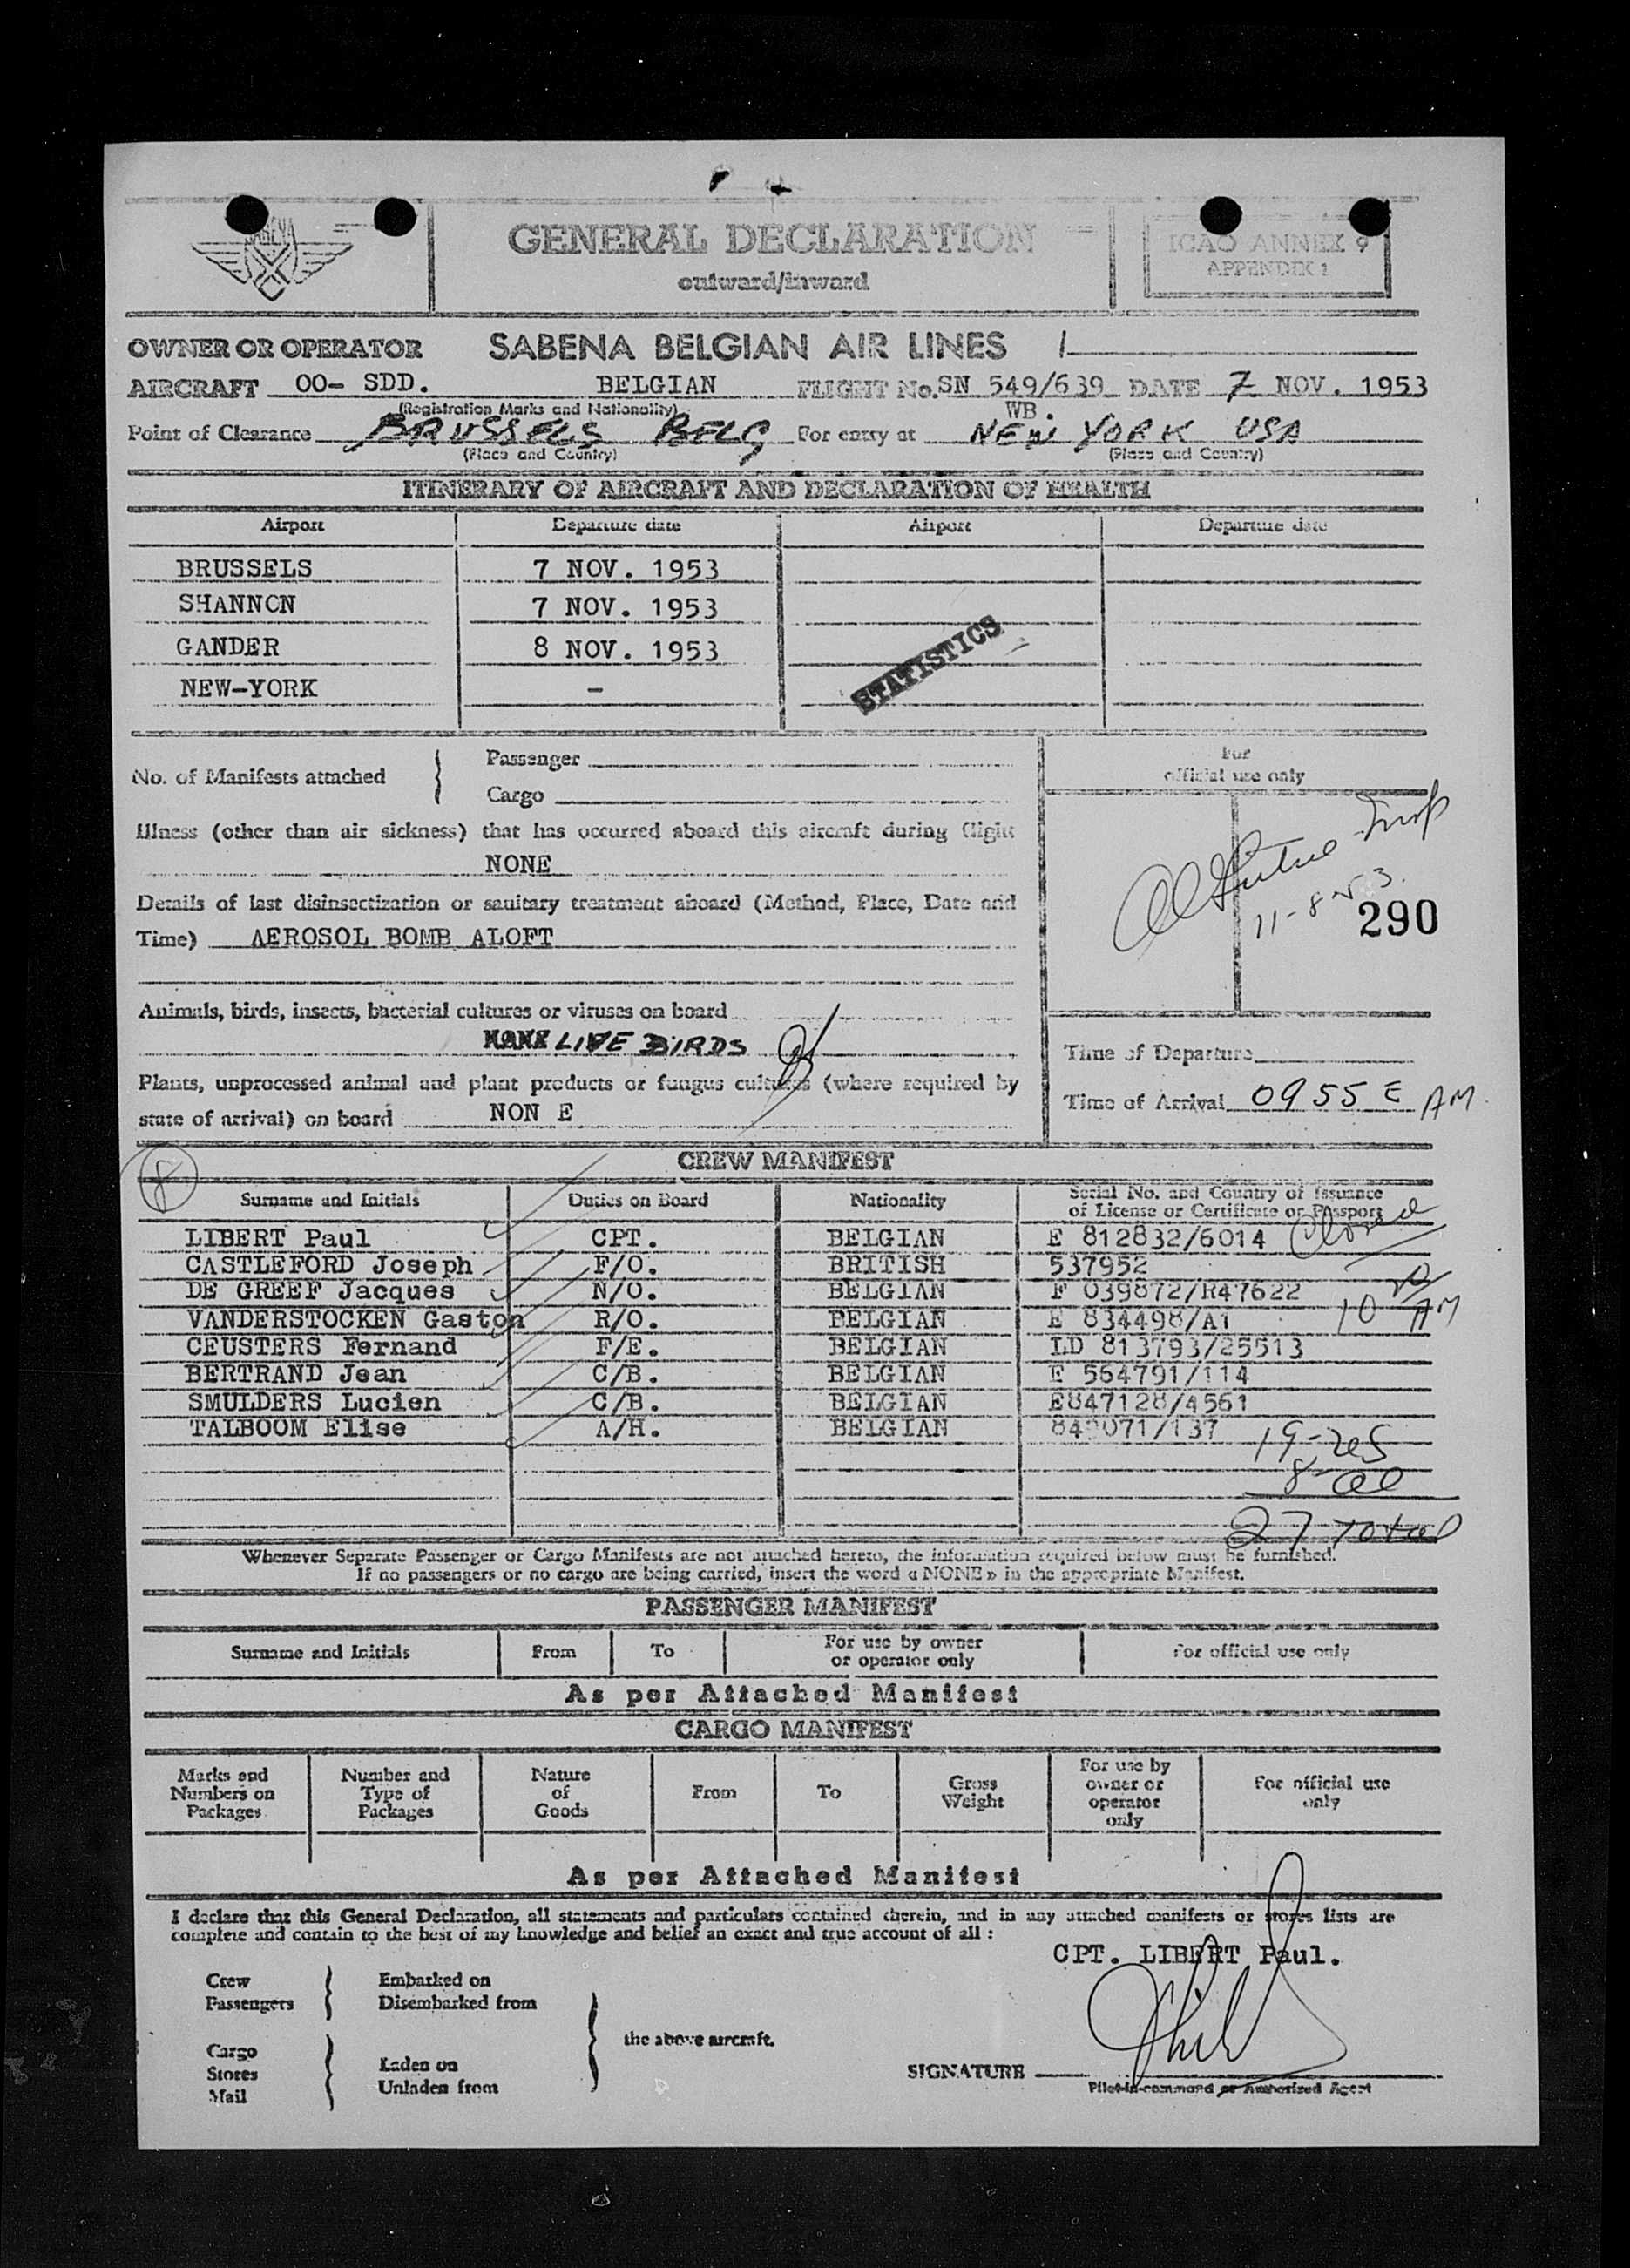 SABENA
GENERAL DECLARATION
outward/inward
ICAO ANNEX 9
APPENDIX 1
OWNER OR OPERATOR SABENA BELGIAN AIR LINES
AIRCRAFT OO- SDD. BELGIAN FLIGHT No. SN 549/639 DATE 7 NOV. 1953
(Registration Marks and Nationality) WB.
Point of Clearance BRUSSELS BELG For entry at NEW YORK USA
(Place and Country) (Place and Country)
ITINERARY OF AIRCRAFT AND DECLARATION OF HEALTH
Airport Departure date Airport Departure date
BRUSSELS 7 NOV. 1953
SHANNON 7 NOV. 1953
GANDER 8 NOV. 1953
NEW-YORK -
STATISTICS
No. of Manifests attached { Passenger
Cargo
For
official use only
Illness (other than air sickness) that has occurred aboard this aircraft during flight
NONE
11-8-53.
290
Details of last disinsectization or sanitary treatment aboard (Method, Place, Date and
Time) AEROSOL BOMB ALOFT
Animals, birds, insects, bacterial cultures or viruses on board
NONE LIVE BIRDS
Plants, unprocessed animal and plant products or fungus cultures (where required by
state of arrival) on board NON E
Time of Departure
Time of Arrival 0955 E AM.
8
CREW MANIFEST
Surname and Initials Duties on Board Nationality Serial No. and Country of Issuance
of License or Certificate or Passport
LIBERT Paul CPT. BELGIAN E 812832/6014 Closed
CASTLEFORD Joseph F/O. BRITISH 537952
DE GREEF Jacques N/O. BELGIAN F 039872/R47622
VANDERSTOCKEN Gaston R/O. BELGIAN E 834498/A1 10 AM
CEUSTERS Fernand F/E. BELGIAN LD 813793/25513
BERTRAND Jean C/B. BELGIAN E 564791/114
SMULDERS Lucien C/B. BELGIAN E847128/4561
TALBOOM Elise A/H. BELGIAN /137
19-
8-
27 Total
Whenever Separate Passenger or Cargo Manifests are not attached hereto, the information required below must be furnished.
If no passengers or no cargo are being carried, insert the word « NONE » in the appropriate Manifest.
PASSENGER MANIFEST
Surname and Initials From To For use by owner
or operator only For official use only
As per Attached Manifest
CARGO MANIFEST
Marks and
Numbers on
Packages
Number and
Type of
Packages
Nature
of
Goods
From
To
Gross
Weight
For use by
owner or
operator
only
For official use
only
As per Attached Manifest
I declare that this General Declaration, all statements and particulars contained therein, and in any attached manifests or stores lists are
complete and contain to the best of my knowledge and belief an exact and true account of all :
CPT. LIBERT Paul.
Crew Embarked on
Passengers Disembarked from
the above aircraft.
Cargo
Stores Laden on
Mail Unladen from
SIGNATURE
Pilot-in-command or Authorized Agent